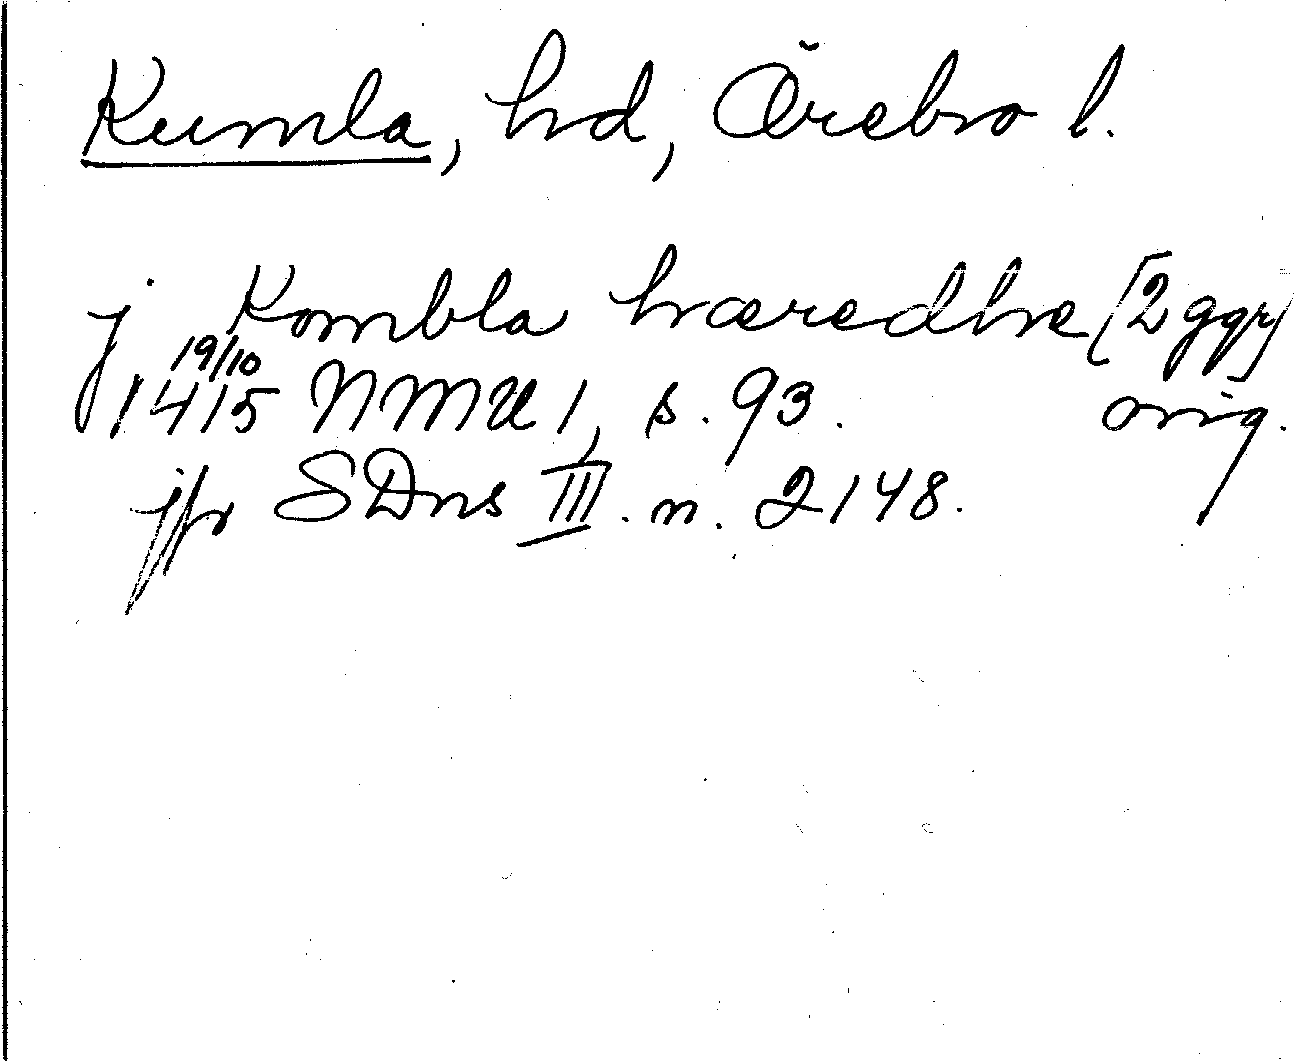 Kumla, hd, Örebro l.
j Kombla hæredhe [2 ggr]
19/10
1415 NMU 1, s. 93. orig.
jfr SDns III. n. 2148.